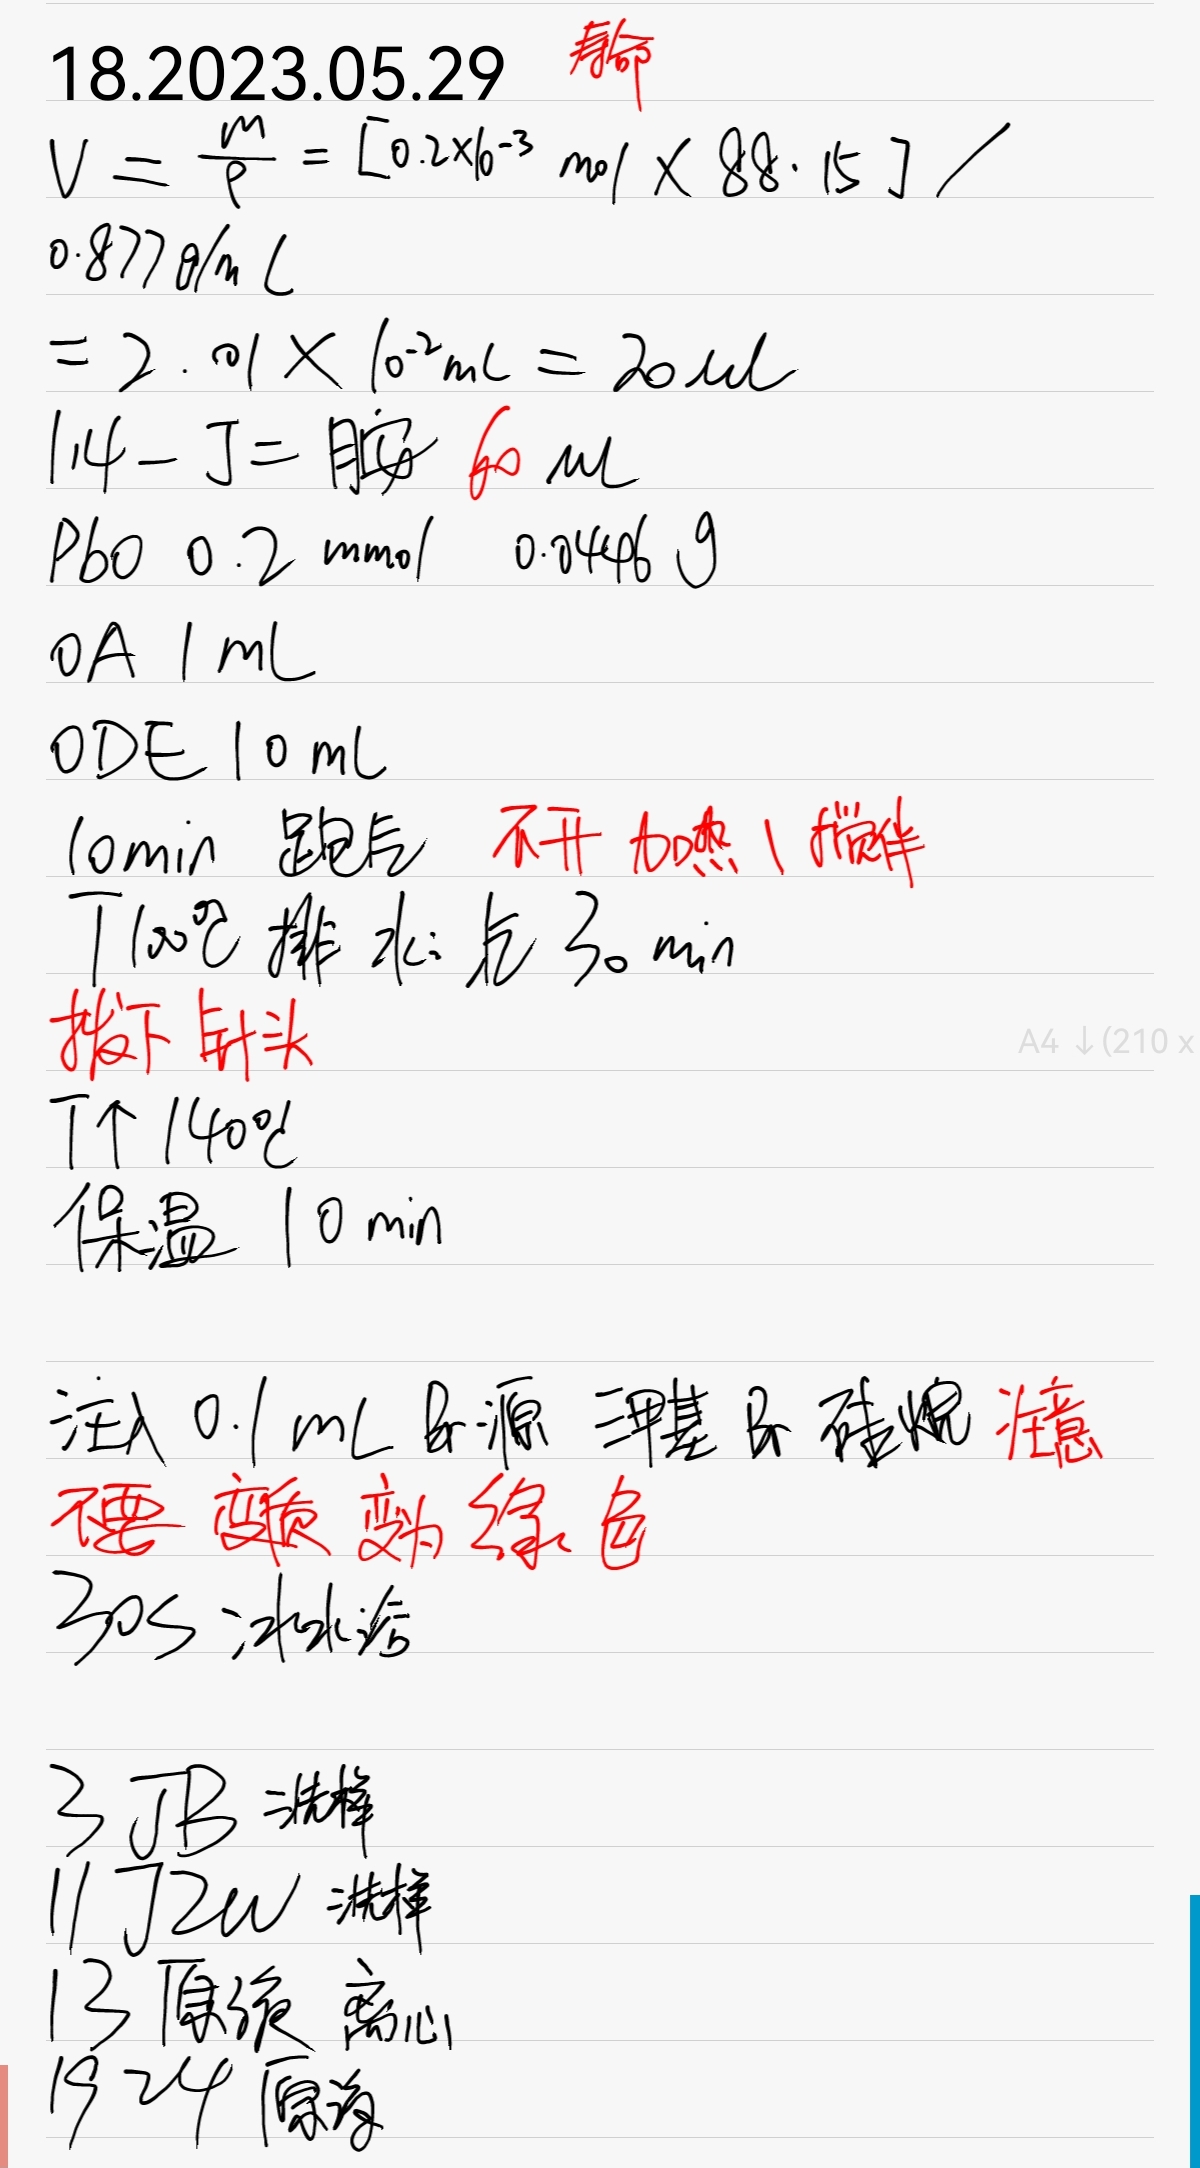 18.2023.05.29 寿命
V = m/ρ = [0.2×10⁻³ mol × 88.15] /
0.877 g/mL
= 2.01 × 10⁻² mL = 20 μL
1,4-丁二胺 60 μL
PbO 0.2 mmol 0.0446 g
OA 1 mL
ODE 10 mL
10min 跑气 不开加热、搅拌
T 100℃ 排水气 30 min
拔下针头
T↑ 140℃
保温 10 min
注入 0.1 mL Br源 三甲基Br硅烷 注意
不要变质 变为绿色
30s 冰水浴
3 JB 洗样
11 JZW 洗样
13 原液 离心
19 24 原液
A4 ↓(210 x